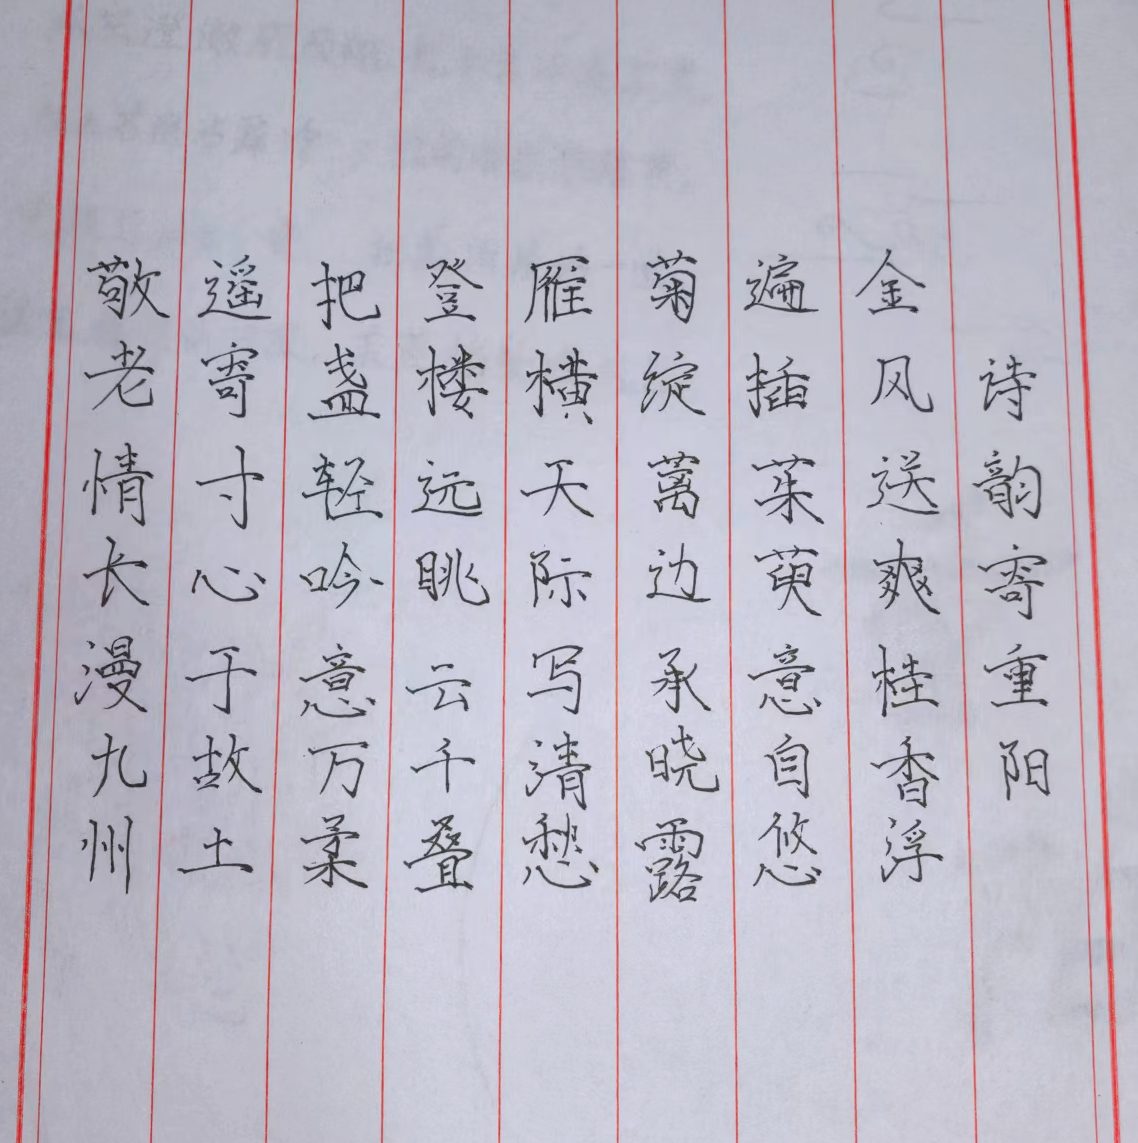 诗韵寄重阳
金风送爽桂香浮
遍插茱萸意自悠
菊绽蓠边承晓露
雁横天际写清愁
登楼远眺云千叠
把盏轻吟意万柔
遥寄寸心于故土
敬老情长漫九州